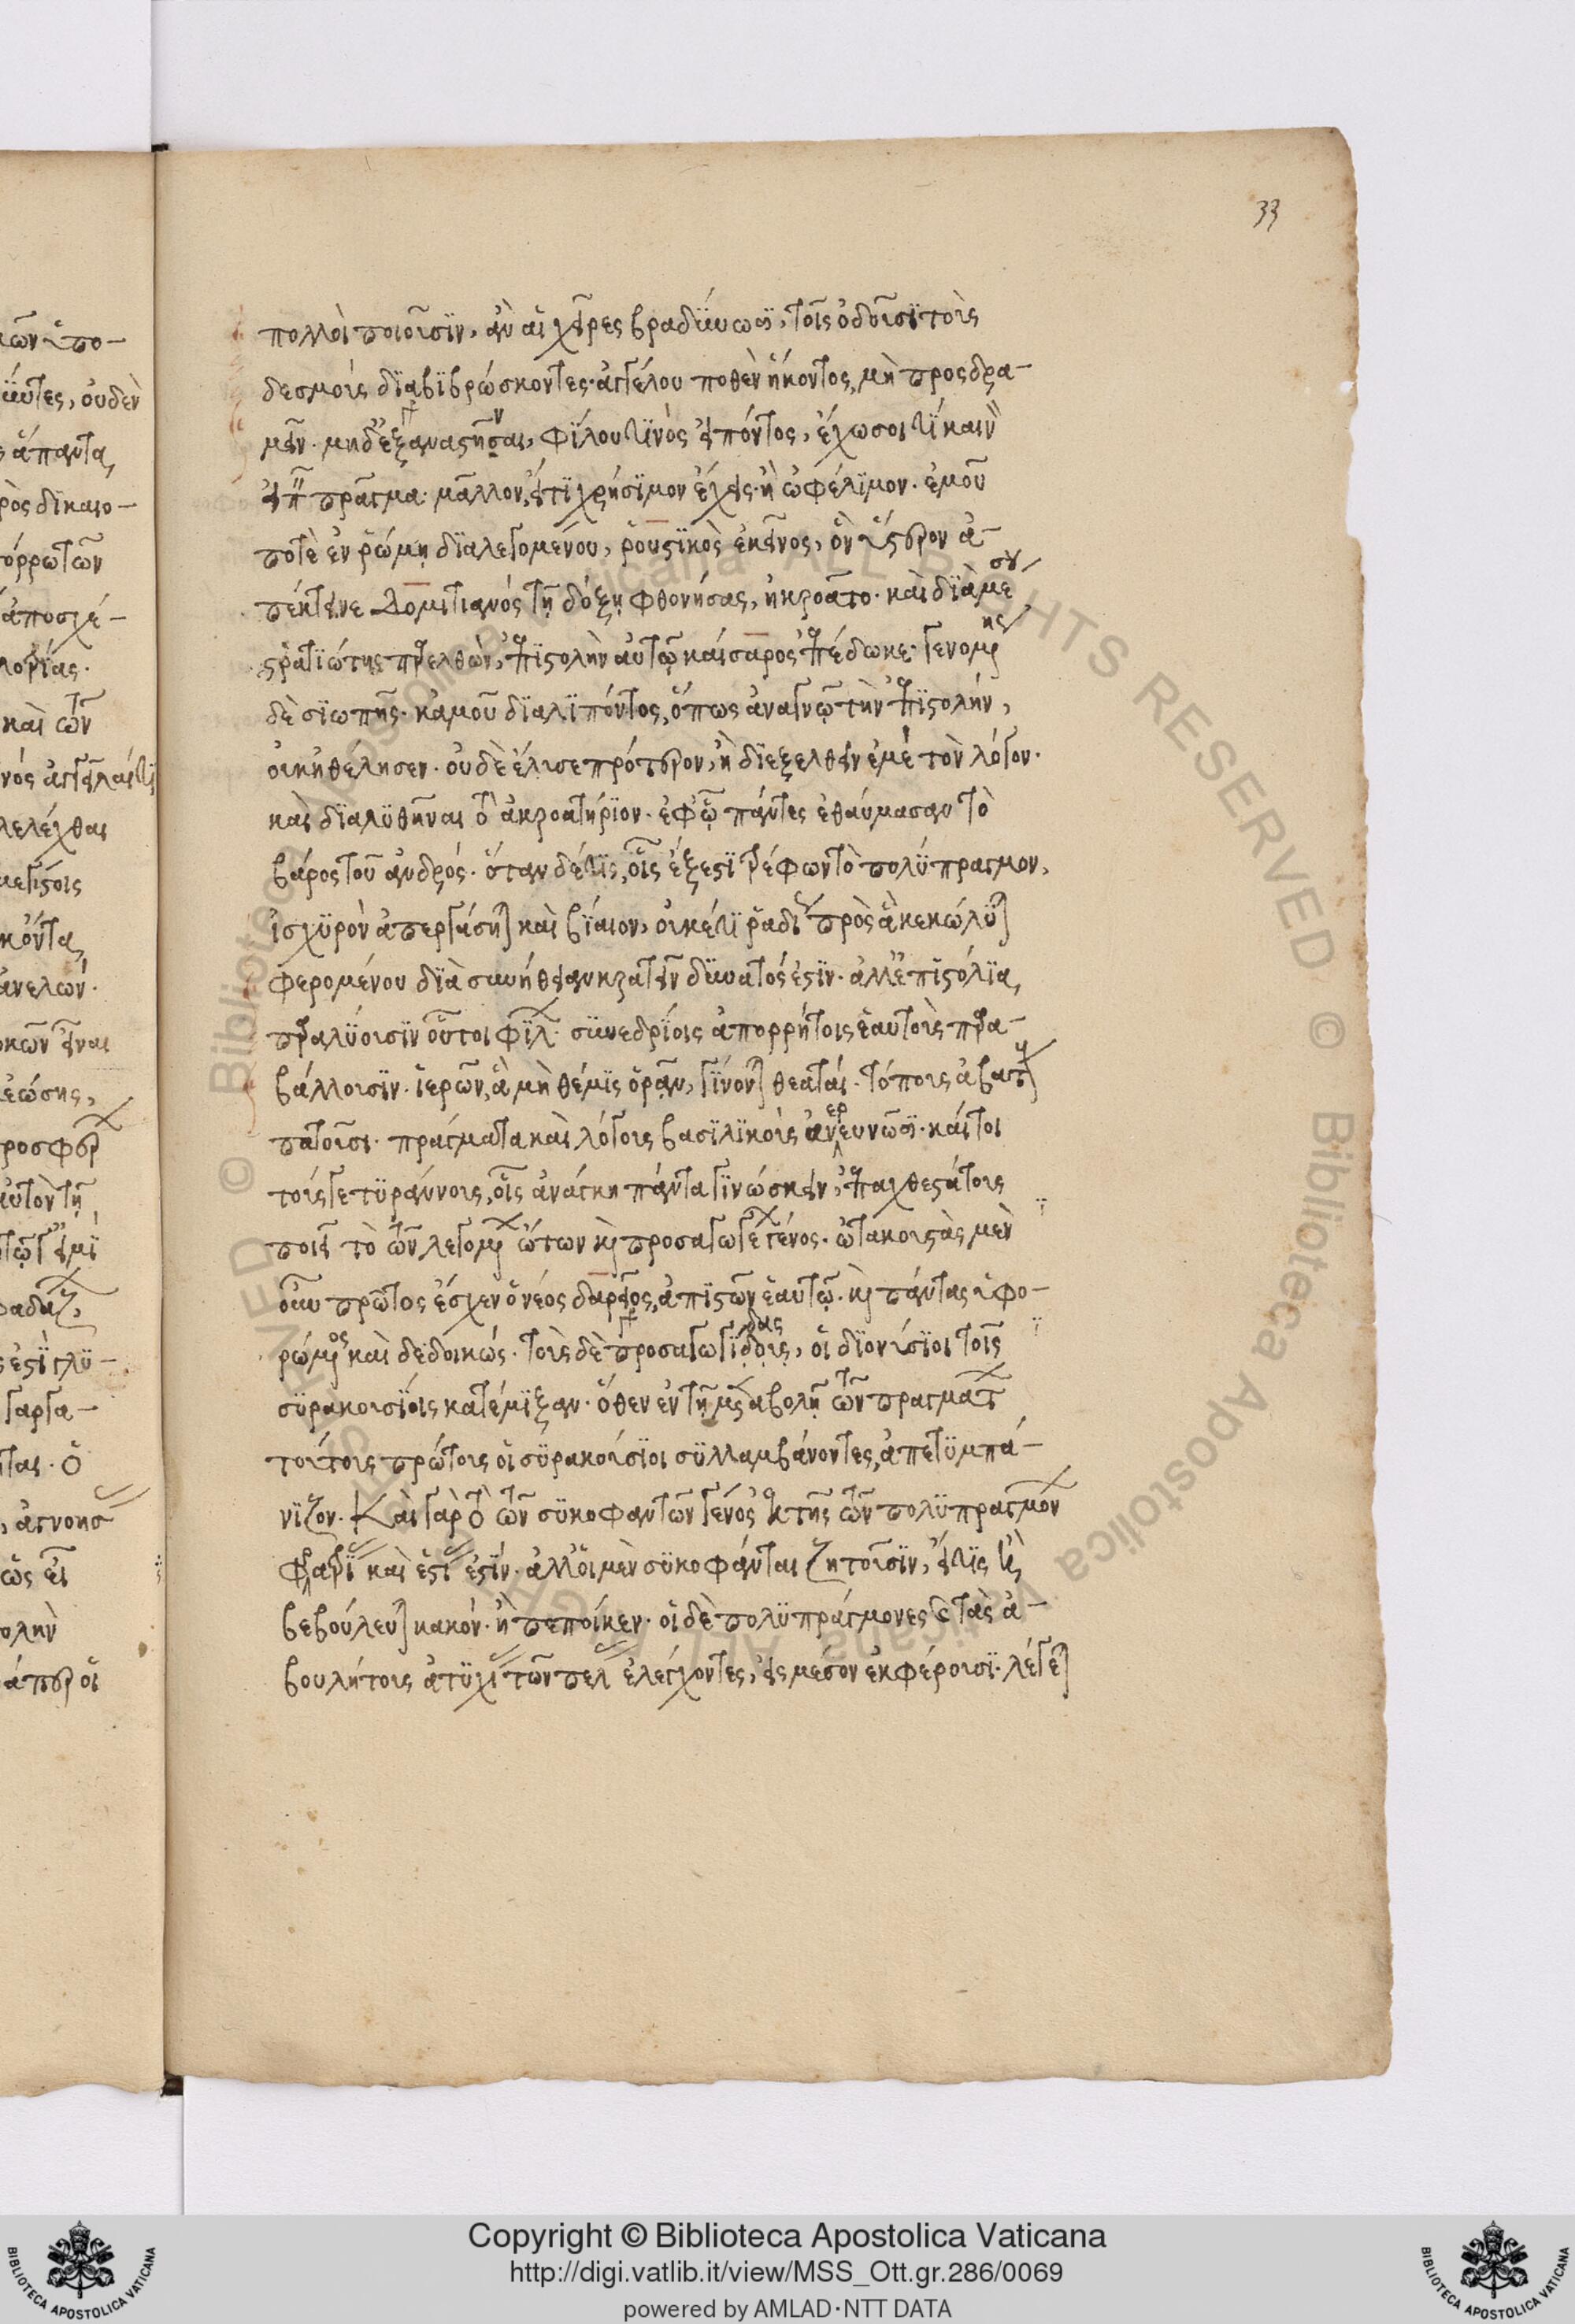 33
πολλοὶ ποιοῦσϊν, ἂν αἱ χεῖρες βραδΰνωσϊ, τοῖς ὀδοῦσϊ τοὺς
δεσμοὺς δϊαβϊβρώσκοντες· ἀγγέλου ποθὲν ἥκοντος, μὴ προσδρα-
μεῖν· μηδ' ἐξαναστῆναι, φΐλου τϊνὸς εἰπόντος, ἔχω σοι τΐ καινὸν
εἰπεῖν πρᾶγμα· μᾶλλον, εἴ τϊ χρήσϊμον ἔχεις· ἢ ὠφέλϊμον· ἐμοῦ
ποτὲ ἐν ῥώμῃ δϊαλεγομένου, ῥουστϊκὸς ἐκεῖνος, ὃν ὕστερον ἀ-
πέκτεινε Δομιτιανός τῇ δόξῃ φθονήσας, ἠκροᾶτο· καὶ δϊὰ μέσου
στρατϊώτης παρελθὼν, ἐπϊστολὴν αὐτῷ καίσαρος ἐπέδωκε· γενομένης
δὲ σϊωπῆς· κἀμοῦ δϊαλϊπόντος, ὅπως ἀναγνῷ τὴν ἐπϊστολήν,
οὐκ ἠθέλησεν· οὐδὲ ἔλυσε πρότερον, ἢ δϊεξελθεῖν ἐμὲ τὸν λόγον·
καὶ δϊαλϋθῆναι τὸ ἀκροατήρϊον· ἐφ' ᾧ πάντες ἐθαύμασαν τὸ
βάρος τοῦ ἀνδρός· ὅταν δέ τϊς, οἷς ἔξεστϊ τρέφων τὸ πολϋπραγμον,
ἰσχϋρὸν ἀπεργάσηται καὶ βΐαιον, οὐκέτϊ ῥαδίως πρὸς ἃ κεκώλϋται
φερομένου δϊὰ συνήθειαν κρατεῖν δϋνατός ἐστϊν· ἀλλ' ἐπϊστόλϊα,
παραλύουσϊν οὗτοι φΐλων· σϋνεδρίοις ἀπορρήτοις ἑαυτοὺς παρα-
βάλλουσϊν· ἱερῶν, ἃ μὴ θέμϊς ὁρᾷν, γΐνονται θεαταί· τόπους ἀβάτους
πατοῦσι· πράγματα καὶ λόγους βασϊλϊκοὺς ἀνερευνῶσϊ· καίτοι
τούς γε τϋράννους, οἷς ἀνάγκη πάντα γϊνώσκειν, ἐπαχθεστάτους
ποιεῖ τὸ τῶν λεγομένων ὤτων καὶ προσαγωγέων γένος· ὠτακουστὰς μὲν
οὖν πρῶτος ἔσχεν ὁ νέος δαρεῖος, ἀπϊστῶν ἑαυτῷ· καὶ πάντας ὑφο-
ρώμενος καὶ δεδοικώς· τοὺς δὲ προσαγωγΐδους, οἱ δϊονύσϊοι τοῖς
σϋρακουσΐοις κατέμϊξαν· ὅθεν ἐν τῇ μεταβολῇ τῶν πραγμάτων
τούτους πρώτους οἱ σϋρακούσϊοι σϋλλαμβάνοντες, ἀπετϋμπά-
νϊζον. Καὶ γὰρ τὸ τῶν σϋκοφαντῶν γένος ἐκ τῆς τῶν πολϋπραγμόνων
φρατρίας καὶ ἑστίας ἐστΐν· ἀλλ' οἱ μὲν σϋκοφάνται ζητοῦσϊν, εἴ τϊς τὶ
βεβούλευται κακόν· ἢ πεποίηκεν· οἱ δὲ πολϋπράγμονες καὶ τὰς ἀ-
βουλήτους ἀτϋχίας τῶν πέλας ἐλέγχοντες, εἰς μέσον ἐκφέρουσϊ· λέγεται
Copyright © Biblioteca Apostolica Vaticana
http://digi.vatlib.it/view/MSS_Ott.gr.286/0069
powered by AMLAD·NTT DATA